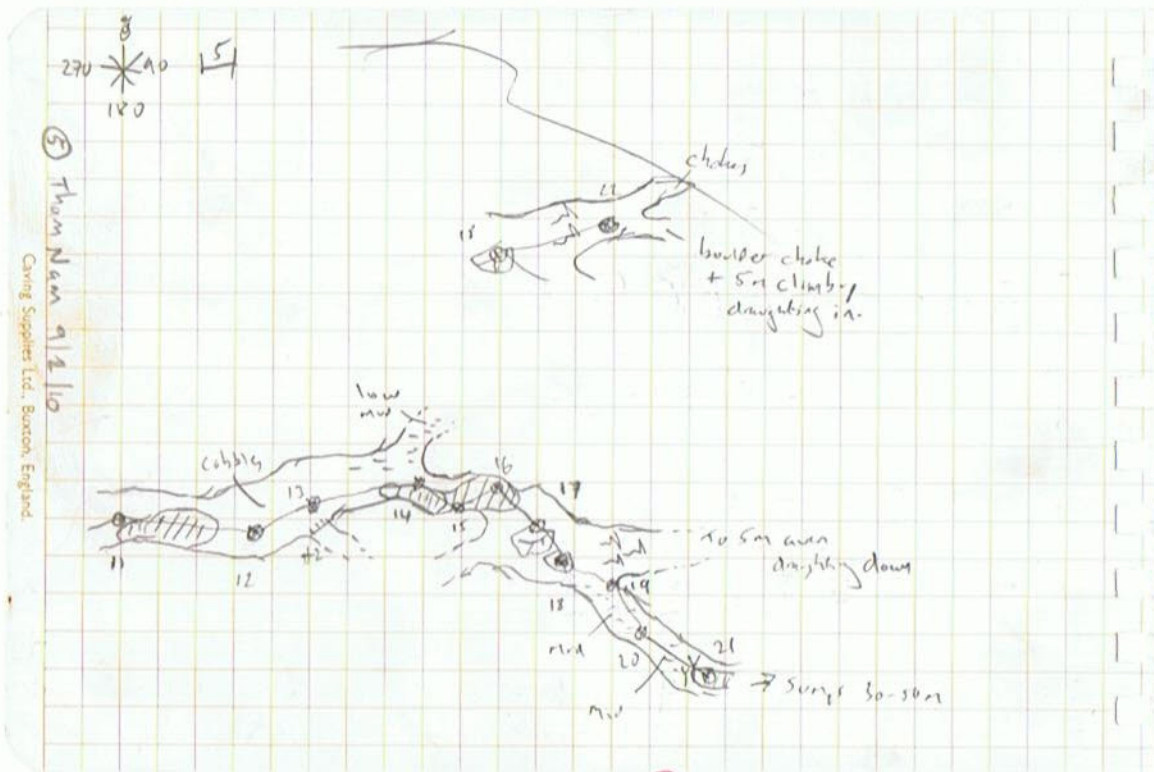 0
5
270 90
180
⑤ Tham Nam 9/2/10
Caving Supplies Ltd., Buxton, England.
chokes
22
18
boulder choke
+ 5m climb,
draughting in.
low
mud
cobbles
16
13
17
14
15
11
+2
12
To 5m aven
draughting down
19
18
mud
20
21
mud
→ Sumps 30-50m